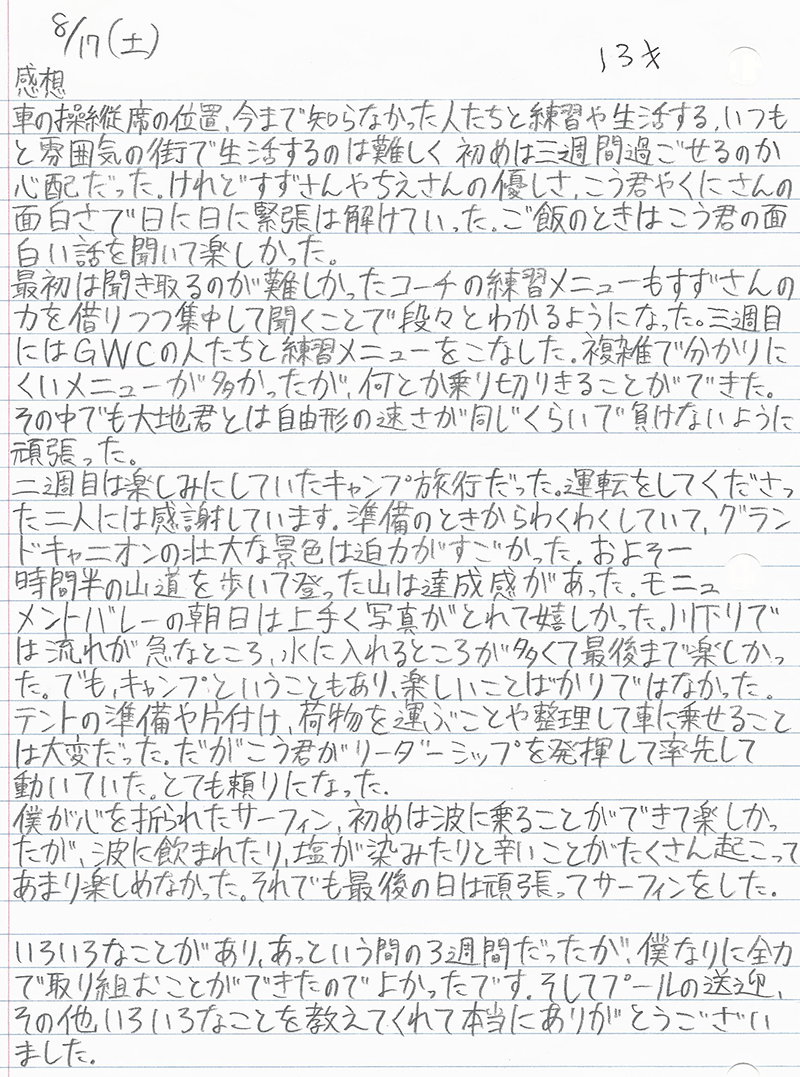 8/17(土)
13才
感想
車の操縦席の位置、今まで知らなかった人たちと練習や生活する、いつも
と雰囲気の街で生活するのは難しく 初めは三週間過ごせるのか
心配だった。けれどすずさんやちえさんの優しさ、こう君やくにさんの
面白さで日に日に緊張は解けていった。ご飯のときはこう君の面
白い話を聞いて楽しかった。
最初は聞き取るのが難しかったコーチの練習メニューもすずさんの
力を借りつつ集中して聞くことで段々とわかるようになった。三週目
にはGWCの人たちと練習メニューをこなした。複雑で分かりに
くいメニューが多かったが、何とか乗り切りきることができた。
その中でも大地君とは自由形の速さが同じくらいで負けないように
頑張った。
二週目は楽しみにしていたキャンプ旅行だった。運転をしてくださっ
た二人には感謝しています。準備のときからわくわくしていて、グラン
ドキャニオンの壮大な景色は迫力がすごかった。およそ一
時間半の山道を歩いて登った山は達成感があった。モニュ
メントバレーの朝日は上手く写真がとれて嬉しかった。川下りで
は流れが急なところ、水に入れるところが多くて最後まで楽しかっ
た。でも、キャンプということもあり、楽しいことばかりではなかった。
テントの準備や片付け、荷物を運ぶことや整理して車に乗せること
は大変だった。だがこう君がリーダーシップを発揮して率先して
動いていた。とても頼りになった。
僕が心を折られたサーフィン、初めは波に乗ることができて楽しかっ
たが、波に飲まれたり、塩が染みたりと辛いことがたくさん起こって
あまり楽しめなかった。それでも最後の日は頑張ってサーフィンをした。
いろいろなことがあり、あっという間の3週間だったが、僕なりに全力
で取り組むことができたのでよかったです。そしてプールの送迎、
その他いろいろなことを教えてくれて本当にありがとうござい
ました。